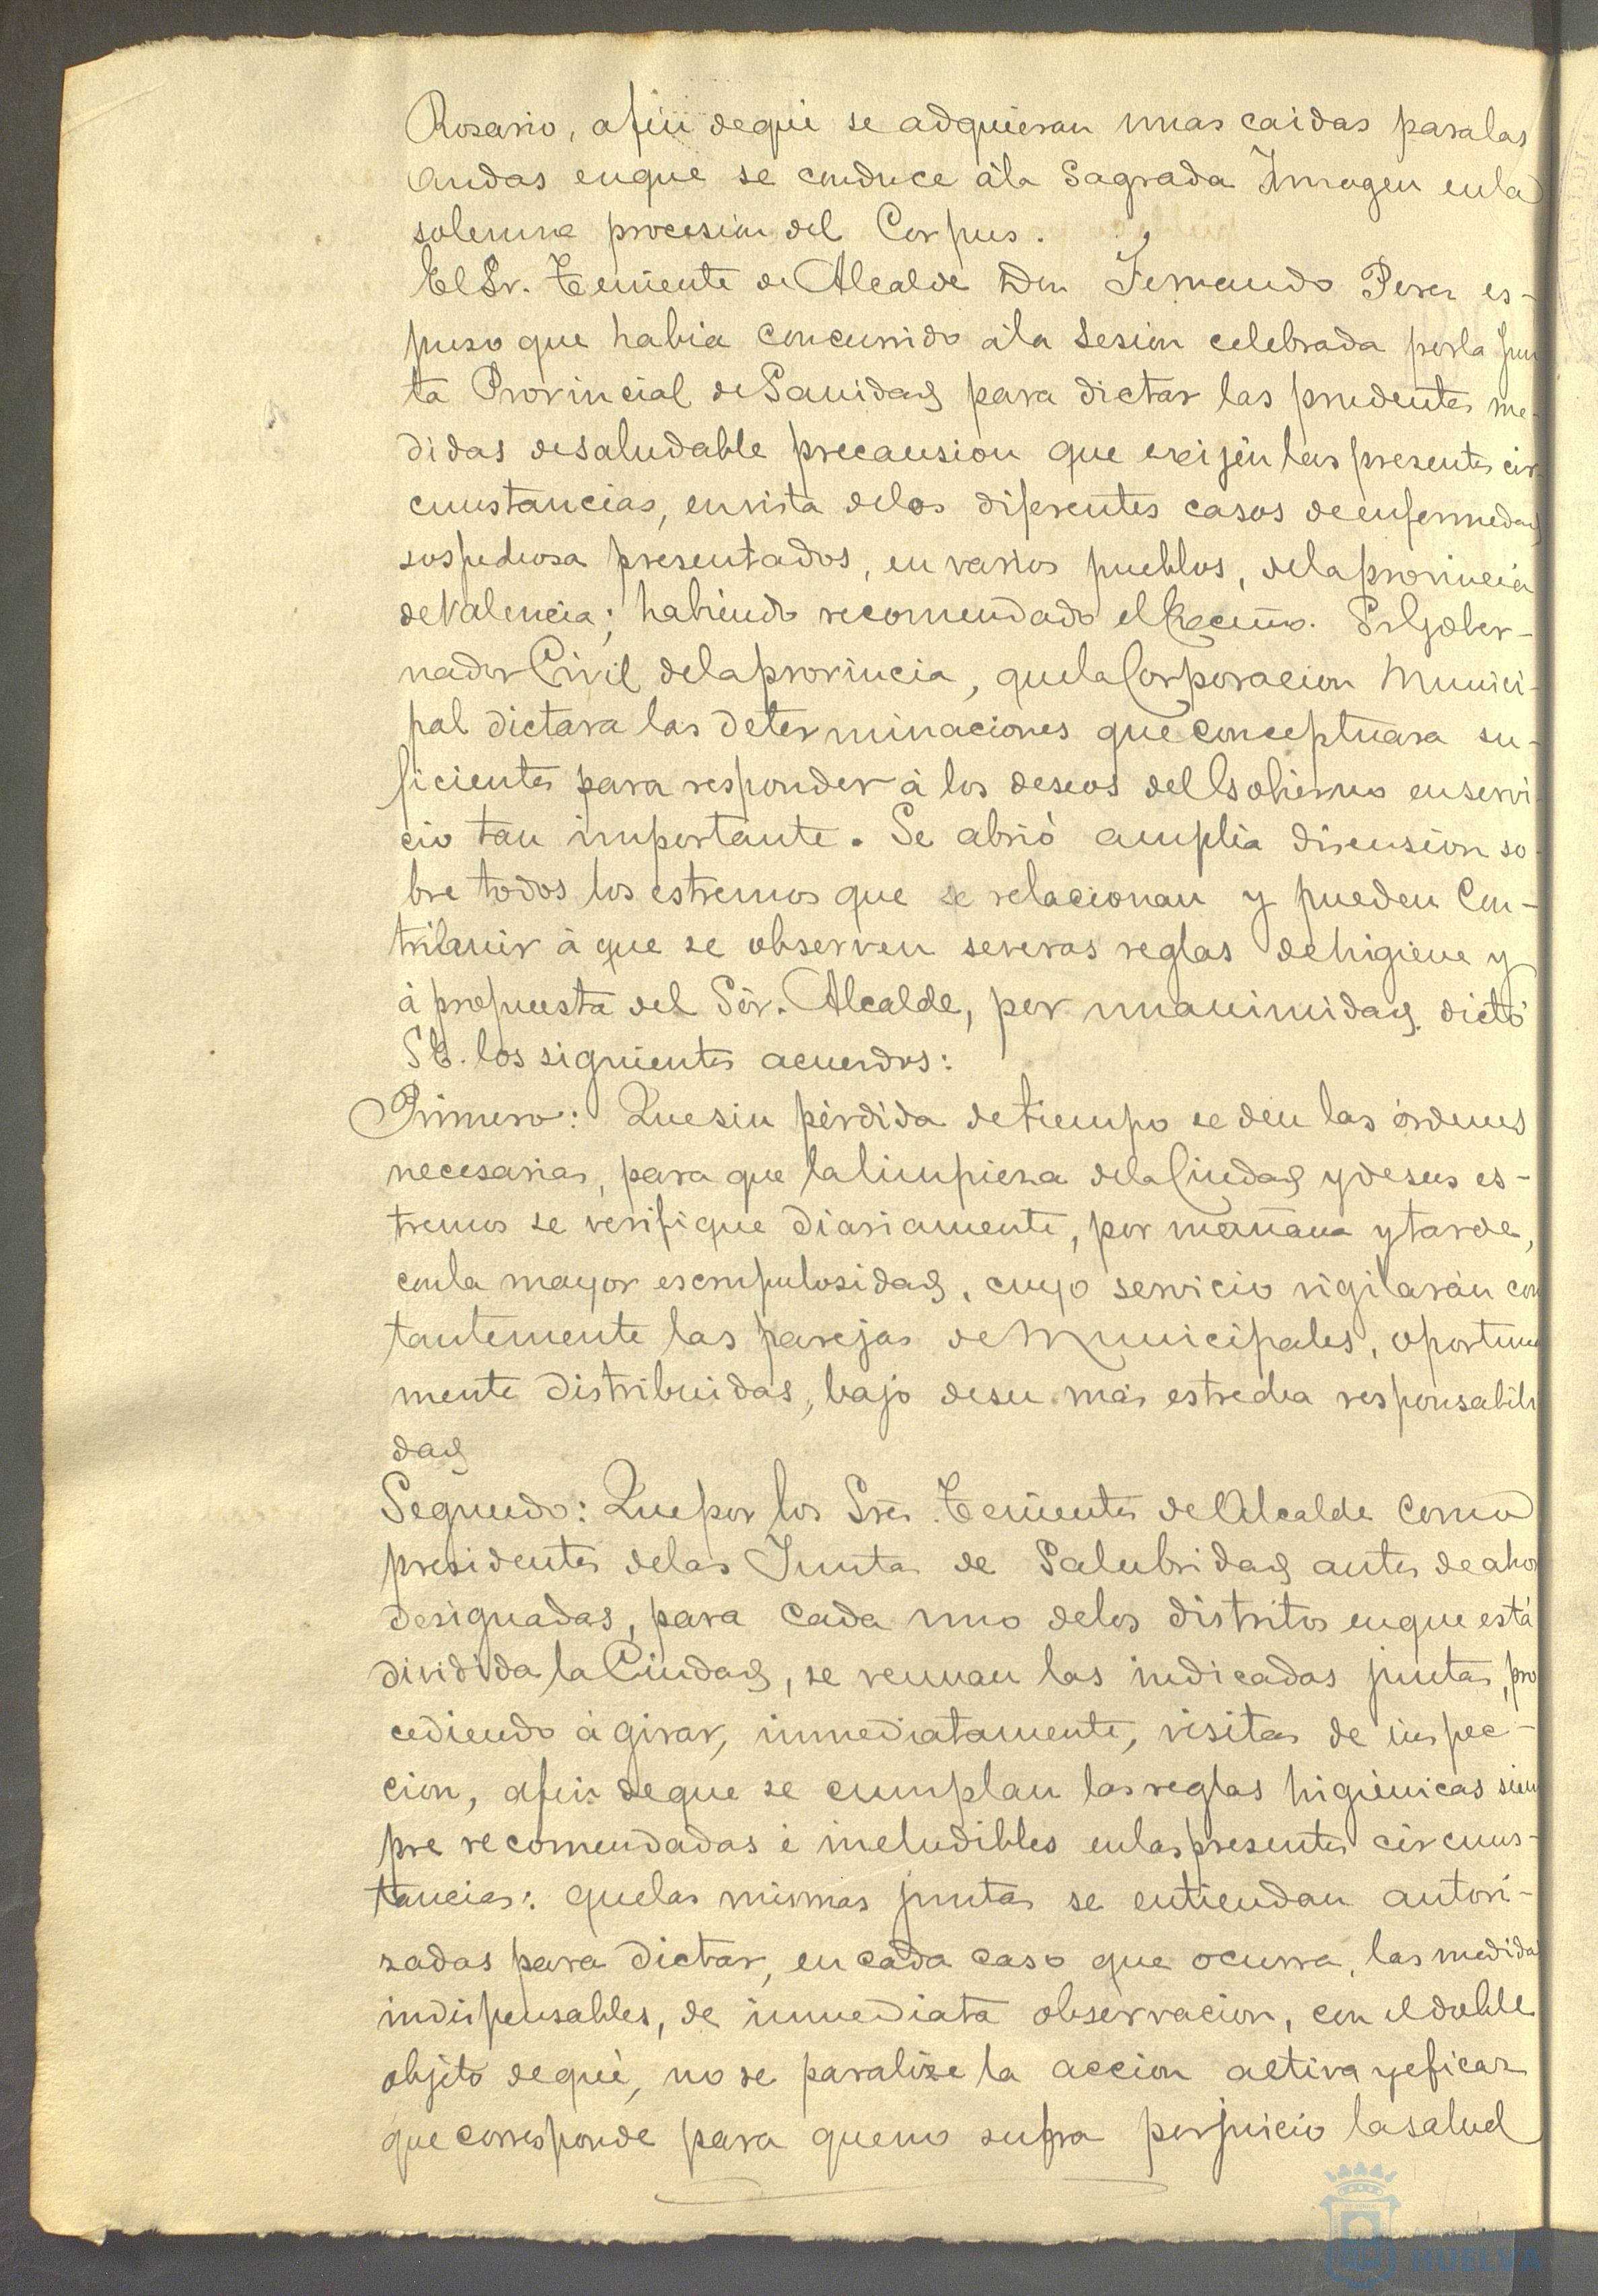 Rosario, afin de qué se adquieran unas caidas para las
andas en que se conduce á la Sagrada Imagen en la
solemne procesion del Corpus.
El Sr. Teniente de Alcalde Don Fernando Perez es-
puso que habia concurrido á la sesion celebrada por la Jun
ta Provincial de Sanidad para dictar las prudentes me-
didas de saludable precausion que exijen las presentes cir-
cunstancias, en vista de los diferentes casos de enfermedad
sospechosa presentados, en varios pueblos, de la provincia
de Valencia; habiendo recomendado el Excmo. Sr. Gober-
nador Civil de la provincia, que la Corporacion Munici-
pal dictara las determinaciones que conceptuara su-
ficientes para responder á los deseos del Gobierno en servi
cio tan importante. Se abrió amplia discusion so-
bre todos los estremos que se relacionan y pueden Con-
tribuir á que se observen severas reglas de higiene y
á propuesta del Sór. Alcalde, por unanimidad dictó
S.E. los siguientes acuerdos:
Primero: Que sin pérdida de tiempo se den las órdenes
necesarias, para que la limpieza de la Ciudad y de sus es-
tremos se verifique diariamente, por mañana y tarde,
con la mayor escrupulosidad, cuyo servicio vigilarán con
tantemente las parejas de Municipales, oportuna
mente distribuidas, bajo de su más estrecha responsabili
dad
Segundo: Que por los Sres. Tenientes de Alcalde como
presidentes de las Juntas de Salubridad antes de ahor
designadas, para cada uno de los distritos en que está
dividida la Ciudad, se reunan las indicadas juntas, pro
cediendo á girar, inmediatamente, visitas de inspec-
cion, afin de que se cumplan las reglas higiénicas siem
pre recomendadas é ineludibles en las presentes circuns-
tancias: que las mismas juntas se entiendan autori-
zadas para dictar, en cada caso que ocurra, las medidas
indispensables, de inmediata observacion, con el doble
objeto de qué, no se paralize la accion activa y eficaz
que corresponde para que no sufra perjuicio la salud
HUELVA